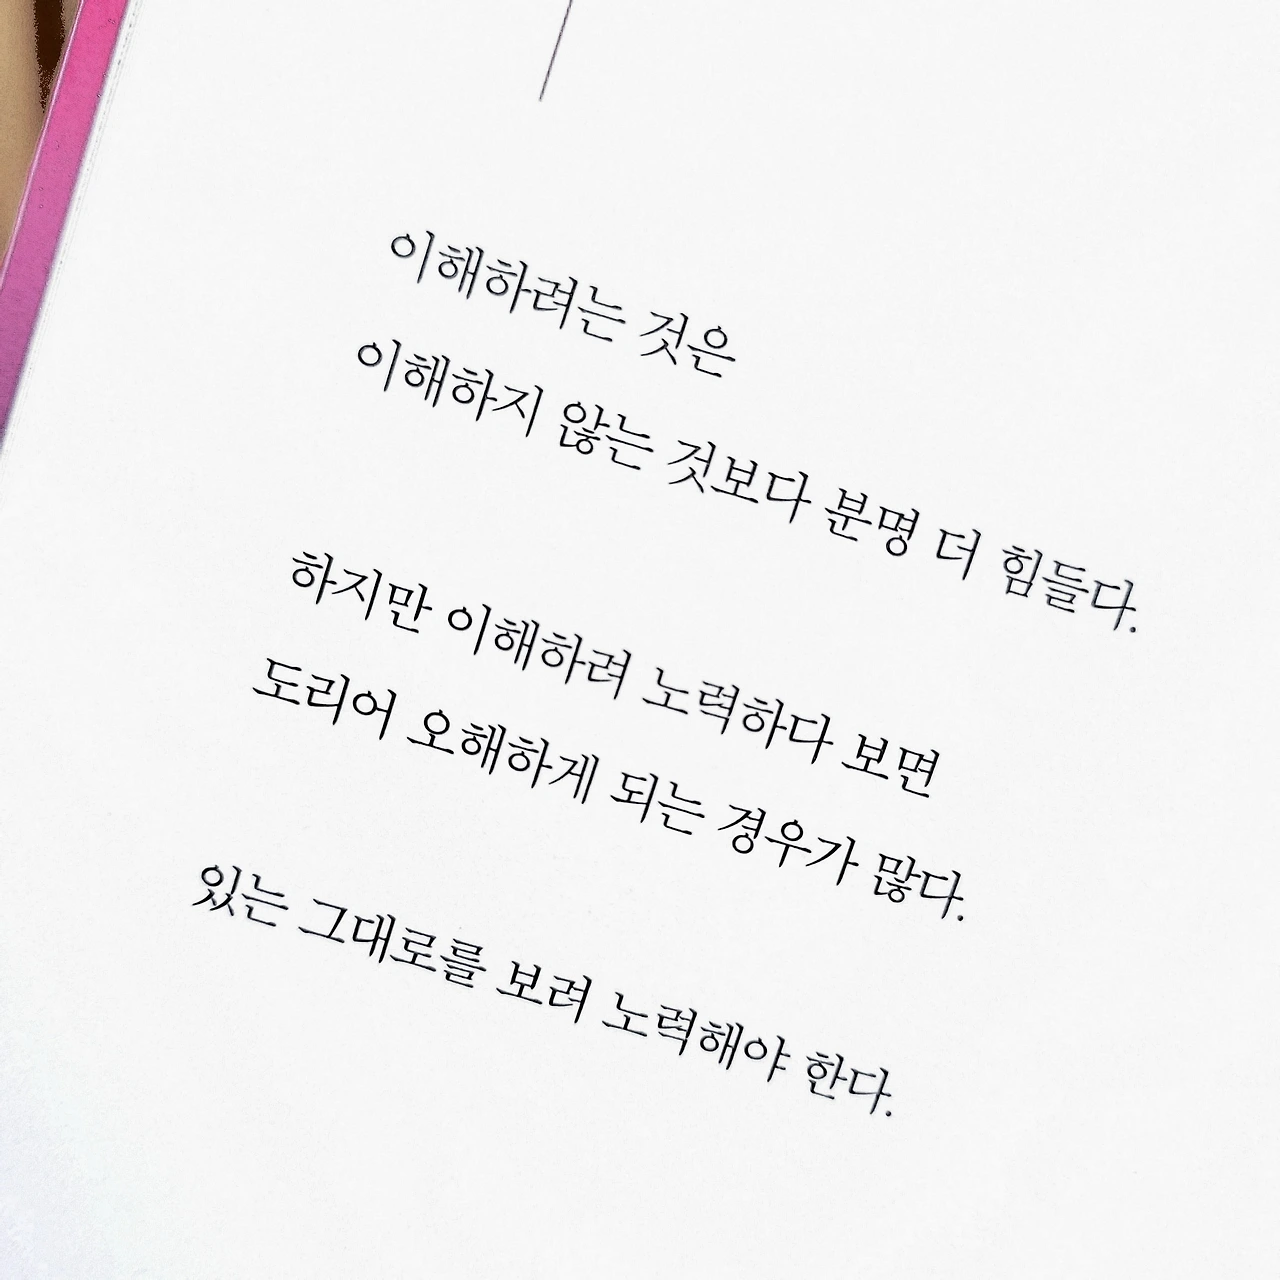 이해하려는 것은
이해하지 않는 것보다 분명 더 힘들다.
하지만 이해하려 노력하다 보면
도리어 오해하게 되는 경우가 많다.
있는 그대로를 보려 노력해야 한다.